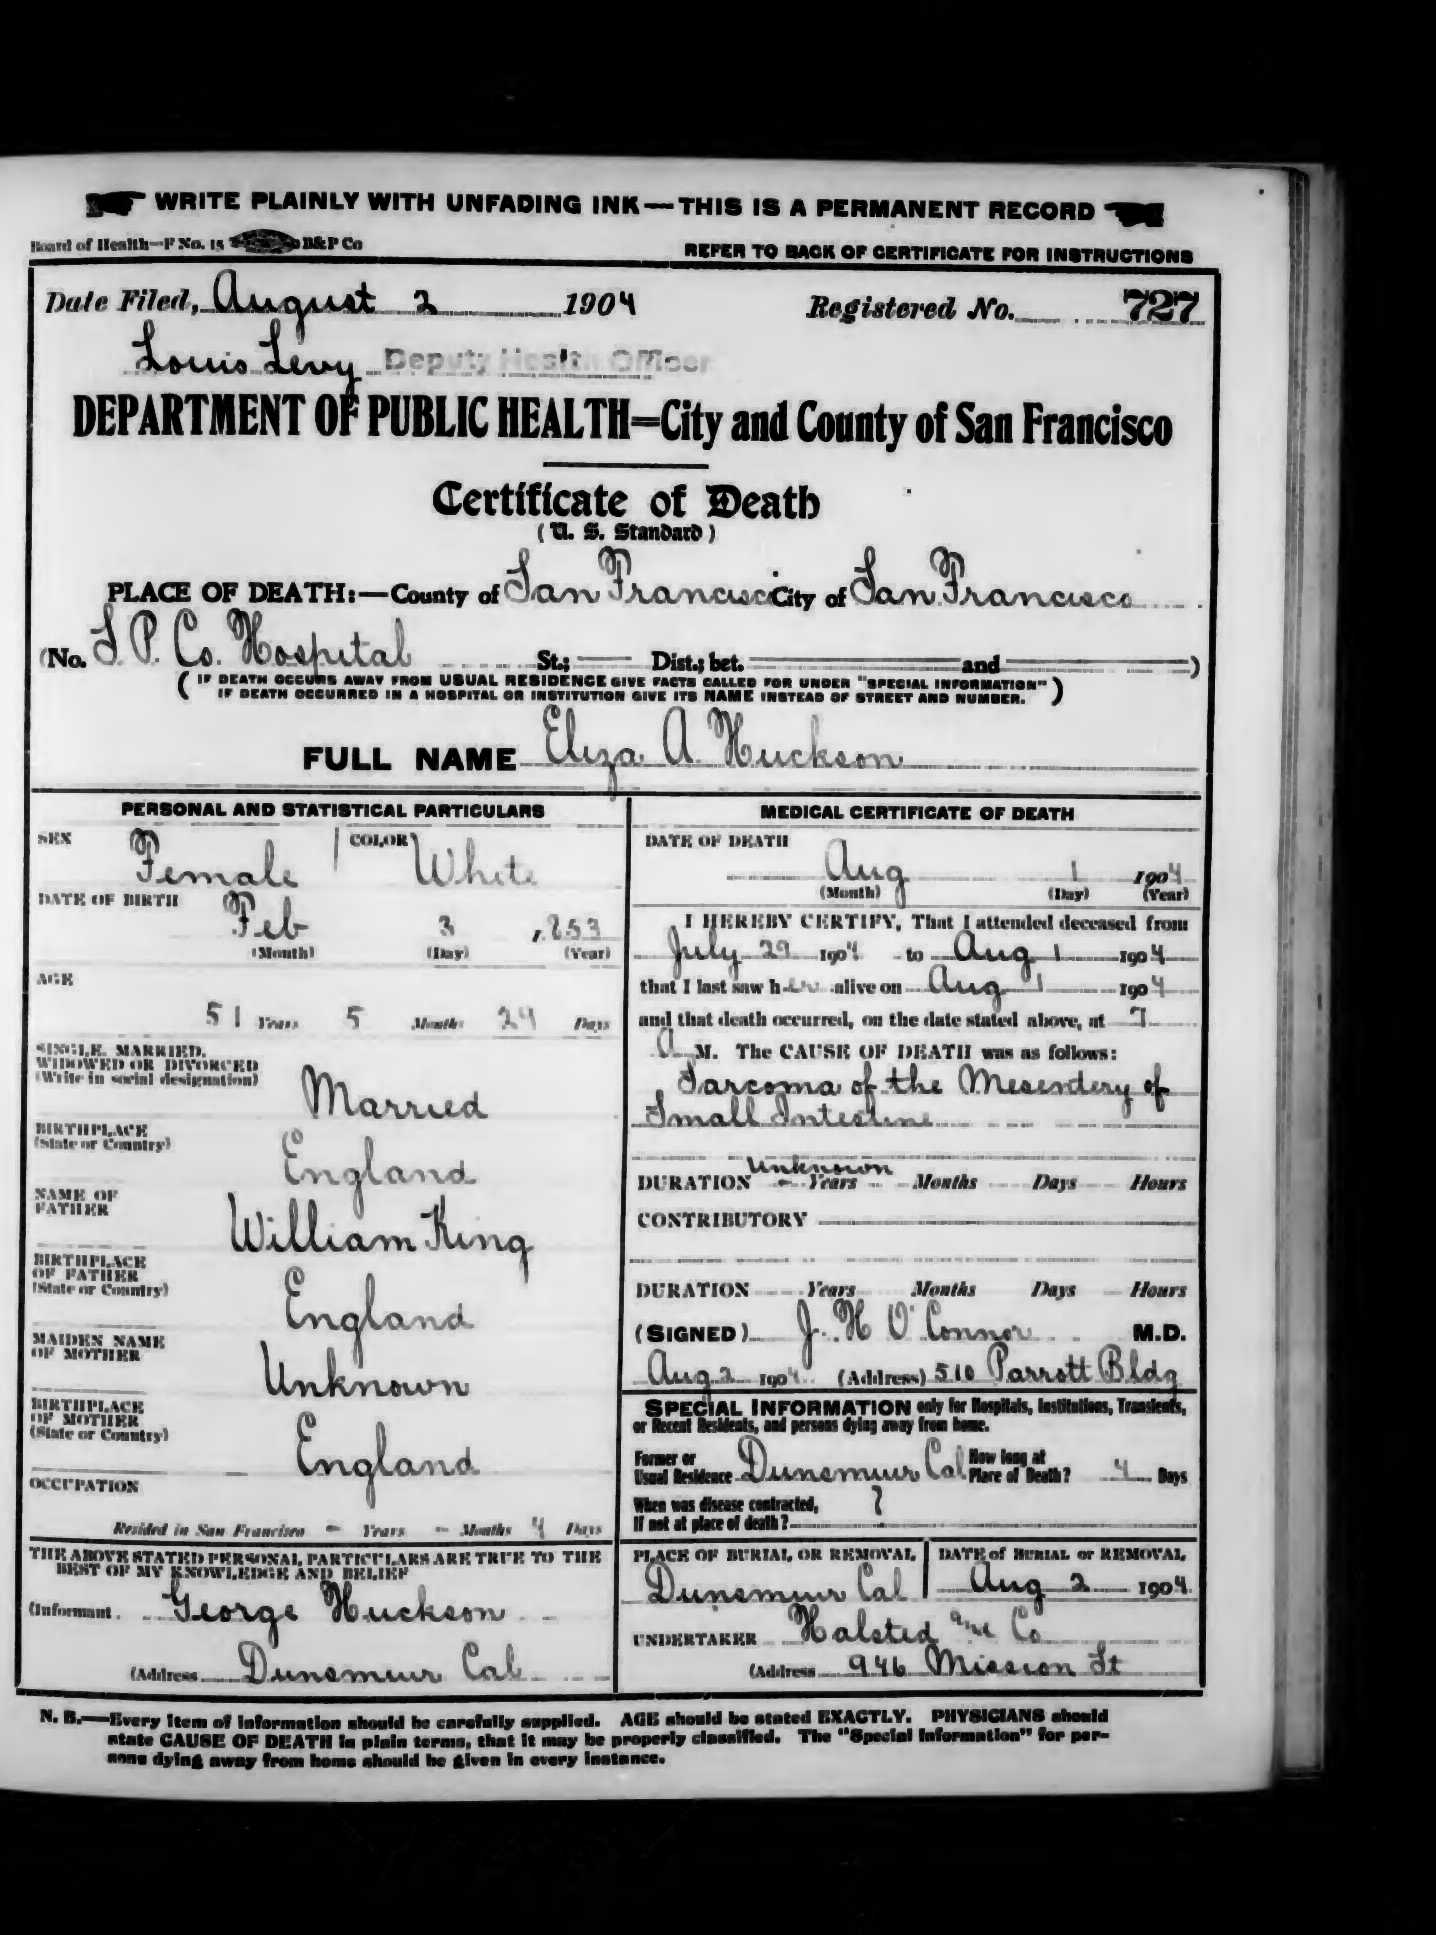 WRITE PLAINLY WITH UNFADING INK—THIS IS A PERMANENT RECORD
Board of Health—F No. 15 B&P Co
REFER TO BACK OF CERTIFICATE FOR INSTRUCTIONS
Date Filed, August 2 1904 Registered No. 727
Louis Levy Deputy Health Officer
DEPARTMENT OF PUBLIC HEALTH=City and County of San Francisco
Certificate of Death
(U. S. Standard)
PLACE OF DEATH:—County of San Francisco City of San Francisco
(No. S. P. Co. Hospital St.; Dist.; bet. and )
( IF DEATH OCCURS AWAY FROM USUAL RESIDENCE GIVE FACTS CALLED FOR UNDER "SPECIAL INFORMATION"
IF DEATH OCCURRED IN A HOSPITAL OR INSTITUTION GIVE ITS NAME INSTEAD OF STREET AND NUMBER. )
FULL NAME Eliza A. Huckson
PERSONAL AND STATISTICAL PARTICULARS
SEX Female COLOR White
DATE OF BIRTH
Feb 3 1853
(Month) (Day) (Year)
AGE
51 Years 5 Months 29 Days
SINGLE, MARRIED,
WIDOWED OR DIVORCED
(Write in social designation)
Married
BIRTHPLACE
(State or Country)
England
NAME OF
FATHER
William King
BIRTHPLACE
OF FATHER
(State or Country)
England
MAIDEN NAME
OF MOTHER
Unknown
BIRTHPLACE
OF MOTHER
(State or Country)
England
OCCUPATION
Resided in San Francisco - Years - Months 4 Days
THE ABOVE STATED PERSONAL PARTICULARS ARE TRUE TO THE
BEST OF MY KNOWLEDGE AND BELIEF
(Informant George Huckson
(Address Dunsmuir Cal
MEDICAL CERTIFICATE OF DEATH
DATE OF DEATH
Aug 1 1904
(Month) (Day) (Year)
I HEREBY CERTIFY, That I attended deceased from
July 29 1904 to Aug 1 1904
that I last saw her alive on Aug 1 1904
and that death occurred, on the date stated above, at 7
A M. The CAUSE OF DEATH was as follows:
Sarcoma of the Mesentery of
Small Intestine
Unknown
DURATION - Years Months Days Hours
CONTRIBUTORY
DURATION Years Months Days Hours
(SIGNED) J. H O'Connor M.D.
Aug 2 1904 (Address) 510 Parrott Bldg
SPECIAL INFORMATION only for Hospitals, Institutions, Transients,
or Recent Residents, and persons dying away from home.
Former or
Usual Residence Dunsmuir Cal How long at
Place of Death? 4 Days
When was disease contracted,
If not at place of death? ?
PLACE OF BURIAL OR REMOVAL
Dunsmuir Cal
DATE of BURIAL or REMOVAL
Aug 2 1904
UNDERTAKER Halsted and Co
(Address 946 Mission St
N. B.—Every item of information should be carefully supplied. AGE should be stated EXACTLY. PHYSICIANS should
state CAUSE OF DEATH in plain terms, that it may be properly classified. The "Special Information" for per-
sons dying away from home should be given in every instance.